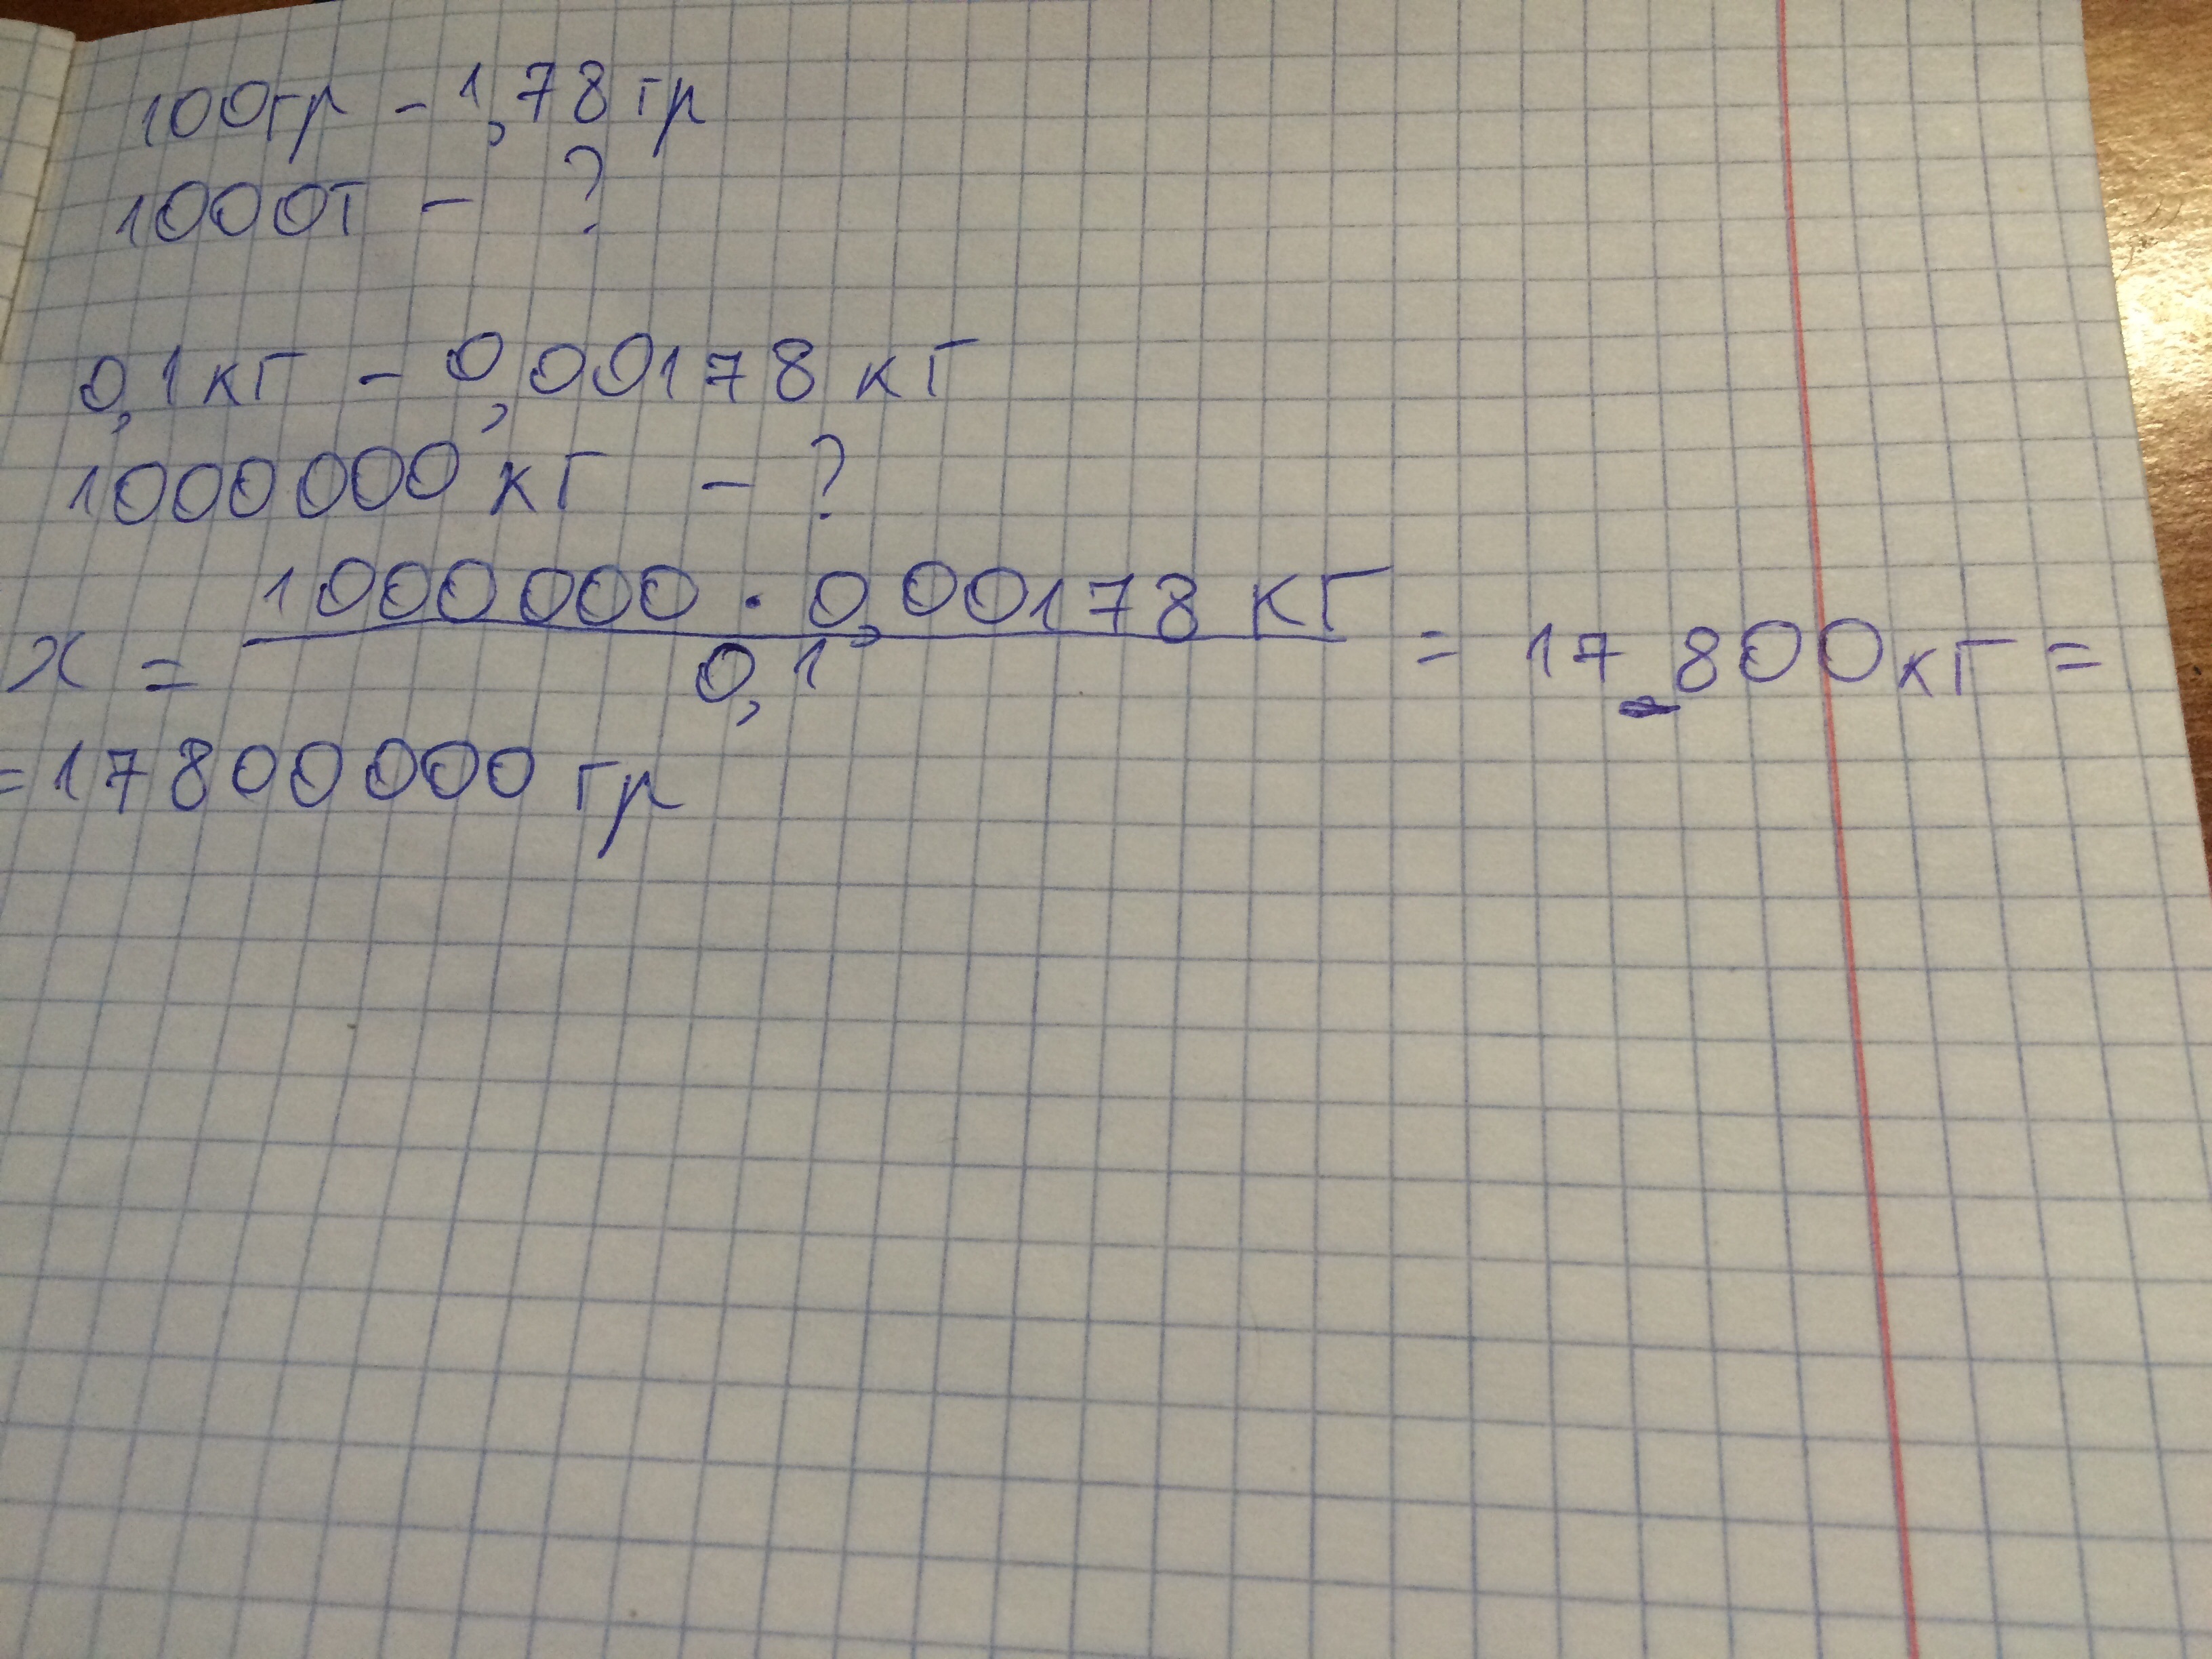 100гр - 1,78 гр
1000т - ?
0,1 кг - 0,00178 кг
1000000 кг - ?
1000000 · 0,00178 кг
x = = 17 800 кг =
0,1
= 17800000 гр